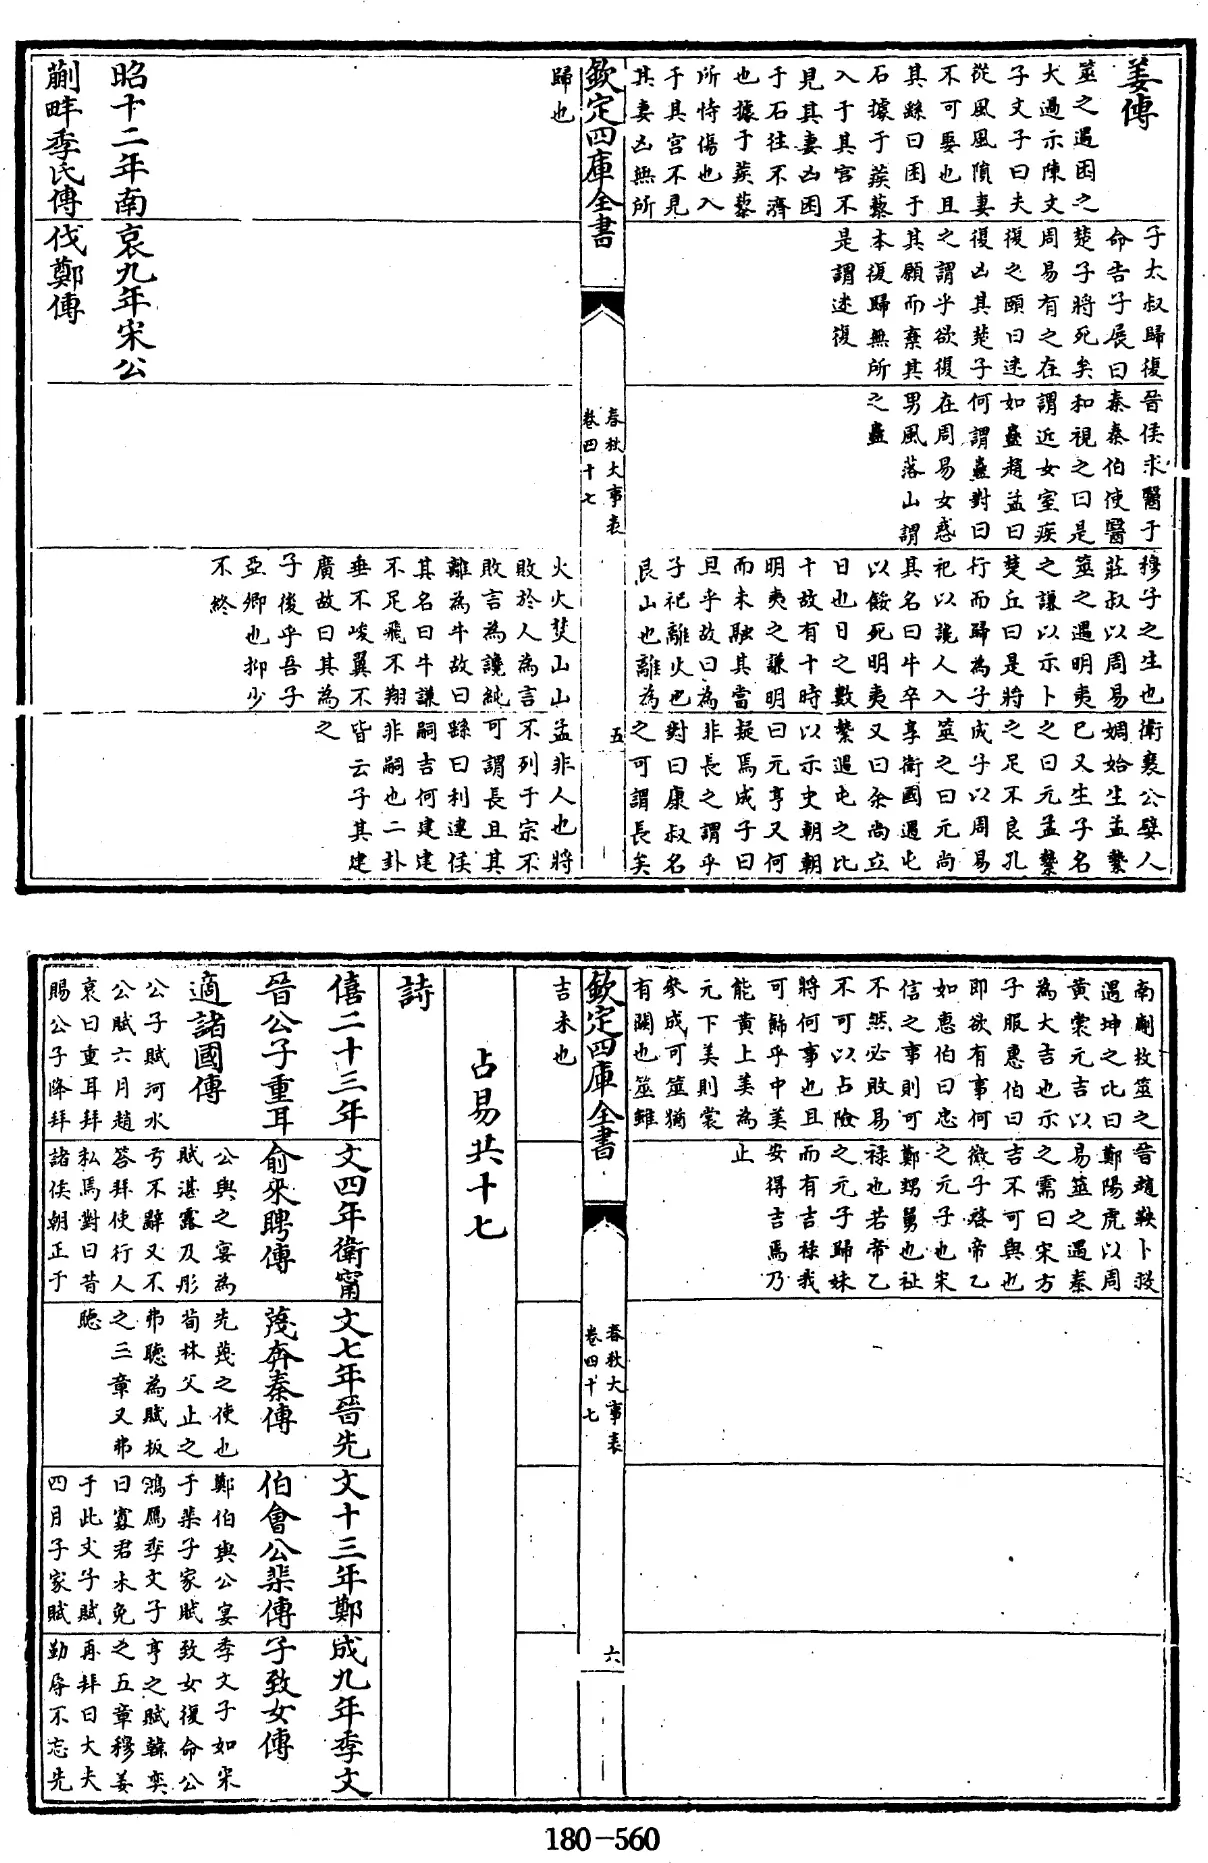 姜傳
筮之遇困之
大過示陳文
子文子曰夫
從風風隕妻
不可娶也且
其繇曰困于
石據于蒺藜
入于其宮不
見其妻凶困
于石往不濟
也據于蒺藜
所恃傷也入
于其宮不見
其妻凶無所
歸也
子太叔歸復
命告子展曰
楚子將死矣
周易有之在
復之頤曰迷
復凶其楚子
之謂乎欲復
其願而棄其
本復歸無所
是謂迷復
晉侯求醫于
秦秦伯使醫
和視之曰是
謂近女室疾
如蠱趙孟曰
何謂蠱對曰
在周易女惑
男風落山謂
之蠱
穆子之生也
莊叔以周易
筮之遇明夷
之謙以示卜
楚丘曰是將
行而歸為子
祀以讒人入
其名曰牛卒
以餒死明夷
日也日之數
十故有十時
明夷之謙明
而未融其當
旦乎故曰為
子祀離火也
艮山也離為
火火焚山山
敗於人為言
敗言為讒純
離為牛故曰
其名曰牛謙
不足飛不翔
垂不峻翼不
廣故曰其為
子後乎吾子
亞卿也抑少
不終
衛襄公嬖人
婤姶生孟縶
已又生子名
之曰元孟縶
之足不良孔
成子以周易
筮之曰元尚
享衛國遇屯
又曰余尚立
縶遇屯之比
以示史朝朝
曰元亨又何
疑焉成子曰
非長之謂乎
對曰康叔名
之可謂長矣
孟非人也將
不列于宗不
可謂長且其
繇曰利建侯
嗣吉何建建
非嗣也二卦
皆云子其建
之
欽定四庫全書
春秋大事表
卷四十七
五
昭十二年南
蒯畔季氏傳
哀九年宋公
伐鄭傳
南蒯枚筮之
遇坤之比曰
黃裳元吉以
為大吉也示
子服惠伯曰
即欲有事何
如惠伯曰忠
信之事則可
不然必敗易
不可以占險
將何事也且
可飾乎中美
能黃上美為
元下美則裳
參成可筮猶
有闕也筮雖
吉未也
晉趙鞅卜救
鄭陽虎以周
易筮之遇泰
之需曰宋方
吉不可與也
微子啓帝乙
之元子也宋
鄭甥舅也祉
祿也若帝乙
之元子歸妹
而有吉祿我
安得吉焉乃
止
欽定四庫全書
春秋大事表
卷四十七
六
占易共十七
詩
僖二十三年
晉公子重耳
適諸國傳
公子賦河水
公賦六月趙
衰曰重耳拜
賜公子降拜
文四年衛甯
俞來聘傳
公與之宴為
賦湛露及彤
弓不辭又不
答拜使行人
私焉對曰昔
諸侯朝正于
文七年晉先
蔑奔秦傳
先蔑之使也
荀林父止之
弗聽為賦板
之三章又弗
聽
文十三年鄭
伯會公棐傳
鄭伯與公宴
于棐子家賦
鴻雁季文子
曰寡君未免
于此文子賦
四月子家賦
成九年季文
子致女傳
季文子如宋
致女復命公
享之賦韓奕
之五章穆姜
再拜曰大夫
勤辱不忘先
180-560